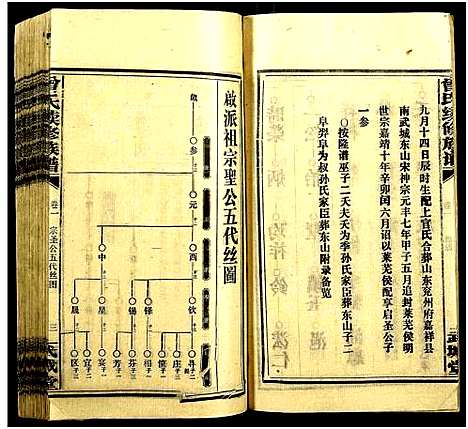 曾氏续修族谱
卷一
九月十四日辰时生配上官氏合葬山东兖州府嘉祥县
南武城东山宋神宗元丰七年甲子五月追封莱芜侯明
世宗嘉靖十年辛卯闰六月诏以莱芜侯配享启圣公子
一参
○按隆谱巫子二天夫天为季孙氏家臣葬东山子二
阜羿阜为叔孙氏家臣葬东山附录备览
武城堂
啟派祖宗聖公五代丝圖
元
酉
中
钦
铎
星
晟
曾氏续修族谱
卷一
宗圣公五代丝图
三
武城堂